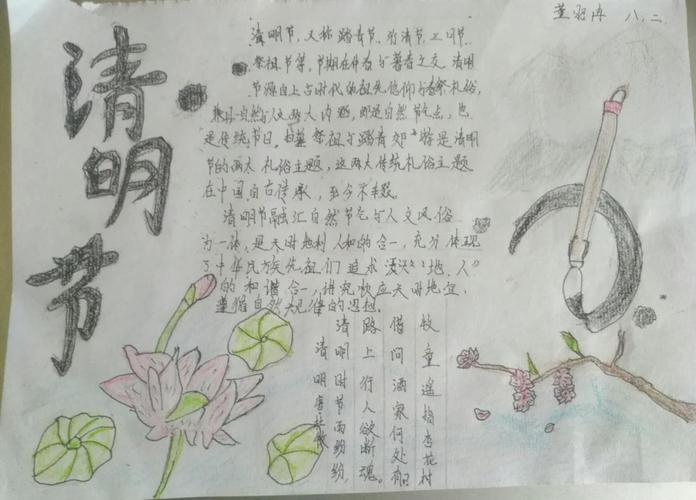 清明节
八.二
清明节,又称踏青节、行清节、三月节、
祭祖节等,节期在仲春与暮春之交。清明
节源自上古时代的祖先信仰与春祭礼俗,
兼具自然与人文两大内涵,即是自然节气点,也
是传统节日。扫墓祭祖与踏青郊游是清明
节的两大礼俗主题,这两大传统礼俗主题
在中国自古传承,至今不辍。
清明节融汇自然节气与人文风俗
为一体,是天时地利人和的合一,充分体现
了中华民族先祖们追求“天、地、人”
的和谐合一,讲究顺应天时地宜、
遵循自然规律的思想。
清明唐杜牧
清明时节雨纷纷,
路上行人欲断魂。
借问酒家何处有
牧童遥指杏花村